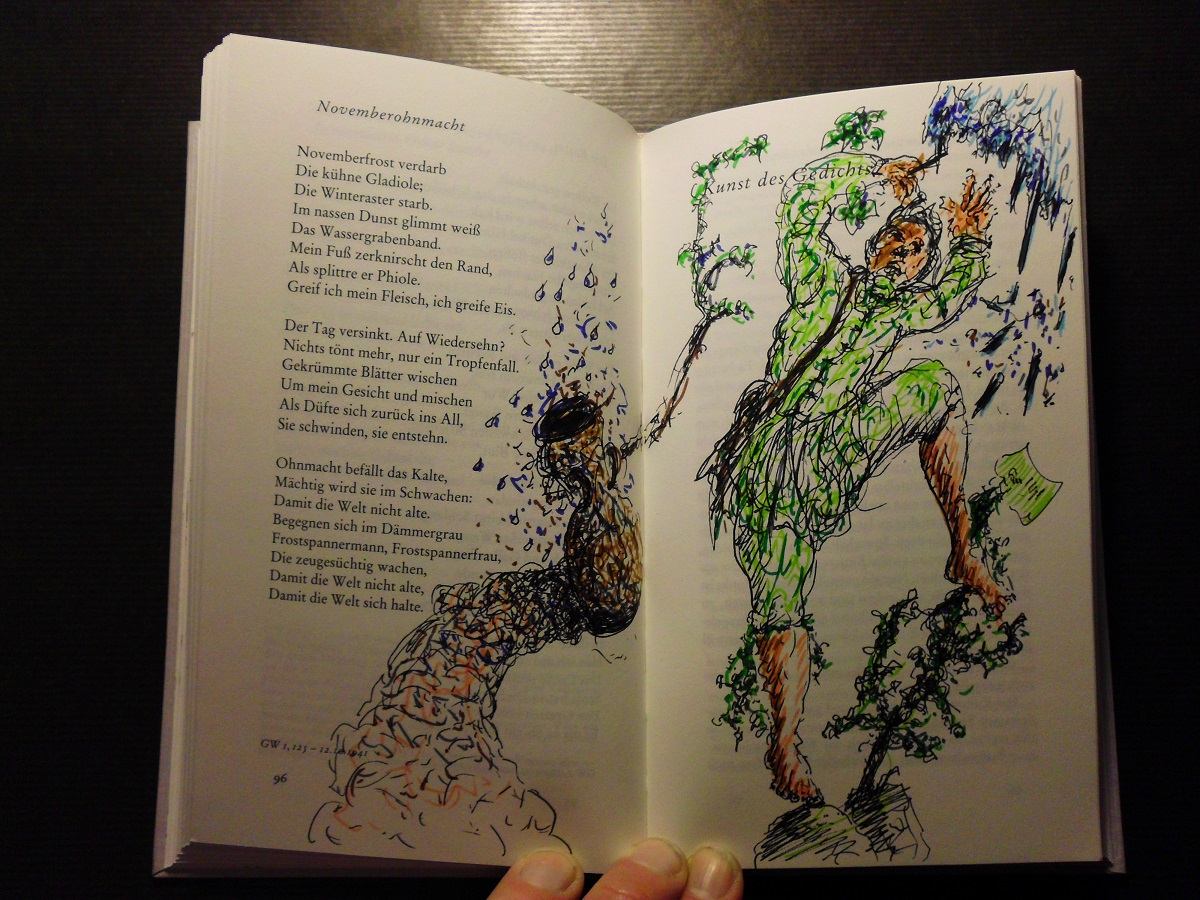 Novemberohnmacht
Novemberfrost verdarb
Die kühne Gladiole;
Die Winteraster starb.
Im nassen Dunst glimmt weiß
Das Wassergrabenband.
Mein Fuß zerknirscht den Rand,
Als splittre er Phiole.
Greif ich mein Fleisch, ich greife Eis.
Der Tag versinkt. Auf Wiedersehn?
Nichts tönt mehr, nur ein Tropfenfall.
Gekrümmte Blätter wischen
Um mein Gesicht und mischen
Als Düfte sich zurück ins All,
Sie schwinden, sie entstehn.
Ohnmacht befällt das Kalte,
Mächtig wird sie im Schwachen:
Damit die Welt nicht alte.
Begegnen sich im Dämmergrau
Frostspannermann, Frostspannerfrau,
Die zeugesüchtig wachen,
Damit die Welt nicht alte,
Damit die Welt sich halte.
GW 1, 123 – 12. 1941
96
Kunst des Gedichts